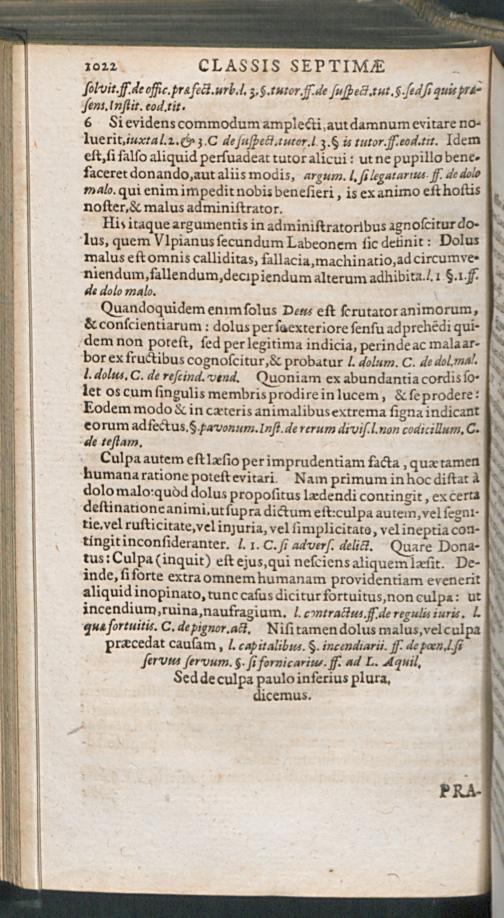 1022 CLASSIS SEPTIMÆ
ſolvit.ff.de offic.præfect.urb.l.3.§.tutor.ff.de ſuſpect.tut.§.ſed ſi quis præ-
ſens.Inſtit. eod.tit.
6 Si evidens commodum amplecti, aut damnum evitare no-
luerit,iuxta l.2.& 3.C de ſuſpect.tutor.l.3.§ is tutor.ff.eod.tit. Idem
eſt,ſi falſo aliquid perſuadeat tutor alicui : ut ne pupillo bene-
faceret donando,aut aliis modis, argum. l.ſi legatarius. ff. de dolo
malo. qui enim impedit nobis benefieri, is ex animo eſt hoſtis
noſter,& malus adminiſtrator.
His itaque argumentis in adminiſtratoribus agnoſcitur do-
lus, quem Vlpianus ſecundum Labeonem ſic definit : Dolus
malus eſt omnis calliditas, fallacia,machinatio,ad circumve-
niendum,fallendum,decipiendum alterum adhibita.l.1 §.1.ff.
de dolo malo.
Quandoquidem enim ſolus Deus eſt ſcrutator animorum,
& conſcientiarum : dolus per ſe exteriore ſenſu adprehẽdi qui-
dem non poteſt, ſed per legitima indicia, perinde ac mala ar-
bor ex fructibus cognoſcitur,& probatur l. dolum. C. de dol.mal.
l. dolus. C. de reſcind. vend. Quoniam ex abundantia cordis ſo-
let os cum ſingulis membris prodire in lucem, & ſe prodere :
Eodem modo & in cæteris animalibus extrema ſigna indicant
eorum adfectus.§.pavonum. Inſt. de rerum diviſ.l.non codicillum. C.
de teſtam.
Culpa autem eſt læſio per imprudentiam facta, quæ tamen
humana ratione poteſt evitari. Nam primum in hoc diſtat à
dolo malo:quòd dolus propoſitus lædendi contingit, ex certa
deſtinatione animi, ut ſupra dictum eſt:culpa autem, vel ſegni-
tie,vel ruſticitate,vel injuria, vel ſimplicitate, vel ineptia con-
tingit inconſideranter. l. 1. C. ſi adverſ. delict. Quare Dona-
tus : Culpa (inquit) eſt ejus,qui neſciens aliquem læſit. De-
inde, ſi forte extra omnem humanam providentiam evenerit
aliquid inopinato, tunc caſus dicitur fortuitus,non culpa : ut
incendium,ruina,naufragium. l. contractus.ff.de regulis iuris. l.
quæ fortuitis. C. de pignor.act. Niſi tamen dolus malus,vel culpa
præcedat cauſam, l. capitalibus. §. incendiarii. ff. de pœn.l.ſi
ſervus ſervum. §. ſi fornicarius. ff. ad L. Aquil.
Sed de culpa paulo inferius plura,
dicemus.
PRA-